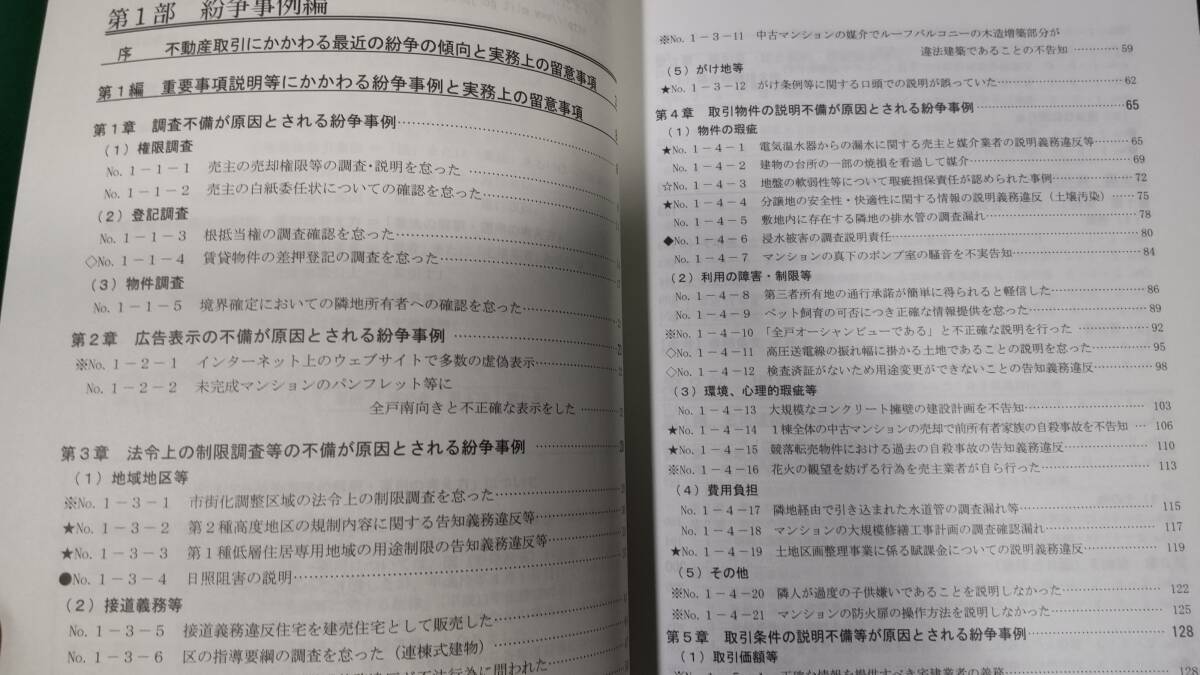 第1部 紛争事例編
序 不動産取引にかかわる最近の紛争の傾向と実務上の留意事項
第1編 重要事項説明等にかかわる紛争事例と実務上の留意事項
第1章 調査不備が原因とされる紛争事例
(1)権限調査
No. 1-1-1 売主の売却権限等の調査・説明を怠った
No. 1-1-2 売主の白紙委任状についての確認を怠った
(2)登記調査
No. 1-1-3 根抵当権の調査確認を怠った
◇No. 1-1-4 賃貸物件の差押登記の調査を怠った
(3)物件調査
No. 1-1-5 境界確定においての隣地所有者への確認を怠った
第2章 広告表示の不備が原因とされる紛争事例
※No. 1-2-1 インターネット上のウェブサイトで多数の虚偽表示
No. 1-2-2 未完成マンションのパンフレット等に
全戸南向きと不正確な表示をした
第3章 法令上の制限調査等の不備が原因とされる紛争事例
(1)地域地区等
※No. 1-3-1 市街化調整区域の法令上の制限調査を怠った
★No. 1-3-2 第2種高度地区の規制内容に関する告知義務違反等
★No. 1-3-3 第1種低層住居専用地域の用途制限の告知義務違反等
●No. 1-3-4 日照阻害の説明
(2)接道義務等
No. 1-3-5 接道義務違反住宅を建売住宅として販売した
No. 1-3-6 区の指導要綱の調査を怠った(連棟式建物)
※No. 1-3-11 中古マンションの媒介でルーフバルコニーの木造増築部分が
違法建築であることの不告知 59
(5)がけ地等
★No. 1-3-12 がけ条例等に関する口頭での説明が誤っていた 62
第4章 取引物件の説明不備が原因とされる紛争事例 65
(1)物件の瑕疵
★No. 1-4-1 電気温水器からの漏水に関する売主と媒介業者の説明義務違反等 65
No. 1-4-2 建物の台所の一部の焼損を看過して媒介 69
☆No. 1-4-3 地盤の軟弱性等について瑕疵担保責任が認められた事例 72
★No. 1-4-4 分譲地の安全性・快適性に関する情報の説明義務違反(土壌汚染) 75
No. 1-4-5 敷地内に存在する隣地の排水管の調査漏れ 78
◆No. 1-4-6 浸水被害の調査説明責任 80
No. 1-4-7 マンションの真下のポンプ室の騒音を不実告知 84
(2)利用の障害・制限等
No. 1-4-8 第三者所有地の通行承諾が簡単に得られると軽信した 86
No. 1-4-9 ペット飼育の可否につき正確な情報提供を怠った 89
※No. 1-4-10 「全戸オーシャンビューである」と不正確な説明を行った 92
◇No. 1-4-11 高圧送電線の振れ幅に掛かる土地であることの説明を怠った 95
◇No. 1-4-12 検査済証がないため用途変更ができないことの告知義務違反 98
(3)環境、心理的瑕疵等
No. 1-4-13 大規模なコンクリート擁壁の建設計画を不告知 103
★No. 1-4-14 1棟全体の中古マンションの売却で前所有者家族の自殺事故を不告知 106
★No. 1-4-15 競落転売物件における過去の自殺事故の告知義務違反 110
※No. 1-4-16 花火の観望を妨げる行為を売主業者が自ら行った 113
(4)費用負担
No. 1-4-17 隣地経由で引き込まれた水道管の調査漏れ等 115
No. 1-4-18 マンションの大規模修繕工事計画の調査確認漏れ 117
★No. 1-4-19 土地区画整理事業に係る賦課金についての説明義務違反 119
(5)その他
※No. 1-4-20 隣人が過度の子供嫌いであることを説明しなかった 122
※No. 1-4-21 マンションの防火扉の操作方法を説明しなかった 125
第5章 取引条件の説明不備等が原因とされる紛争事例 128
(1)取引価額等